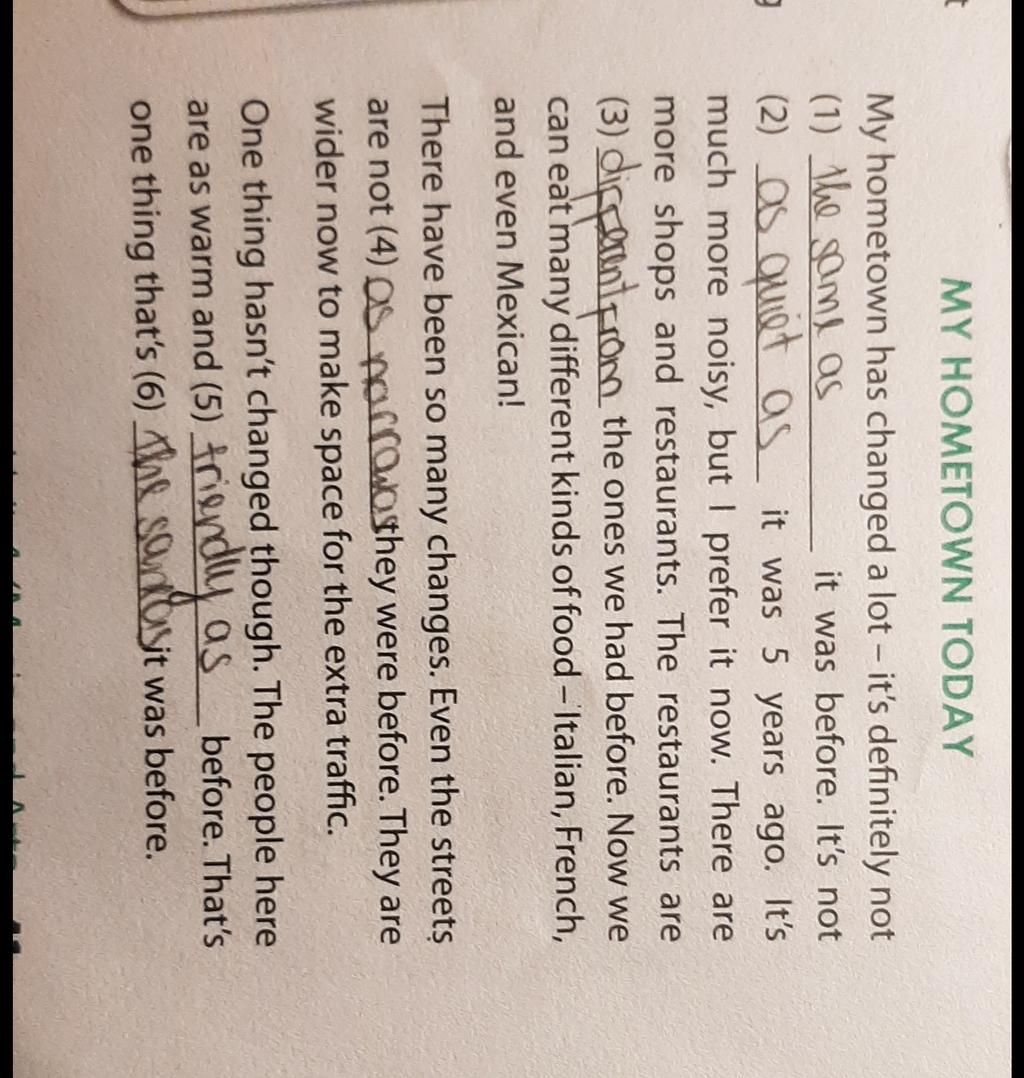 MY HOMETOWN TODAY
My hometown has changed a lot – it's definitely not
(1) the same as it was before. It's not
(2) as quiet as it was 5 years ago. It's
much more noisy, but I prefer it now. There are
more shops and restaurants. The restaurants are
(3) different from the ones we had before. Now we
can eat many different kinds of food – Italian, French,
and even Mexican!
There have been so many changes. Even the streets
are not (4) as narrow as they were before. They are
wider now to make space for the extra traffic.
One thing hasn't changed though. The people here
are as warm and (5) friendly as before. That's
one thing that's (6) the same as it was before.